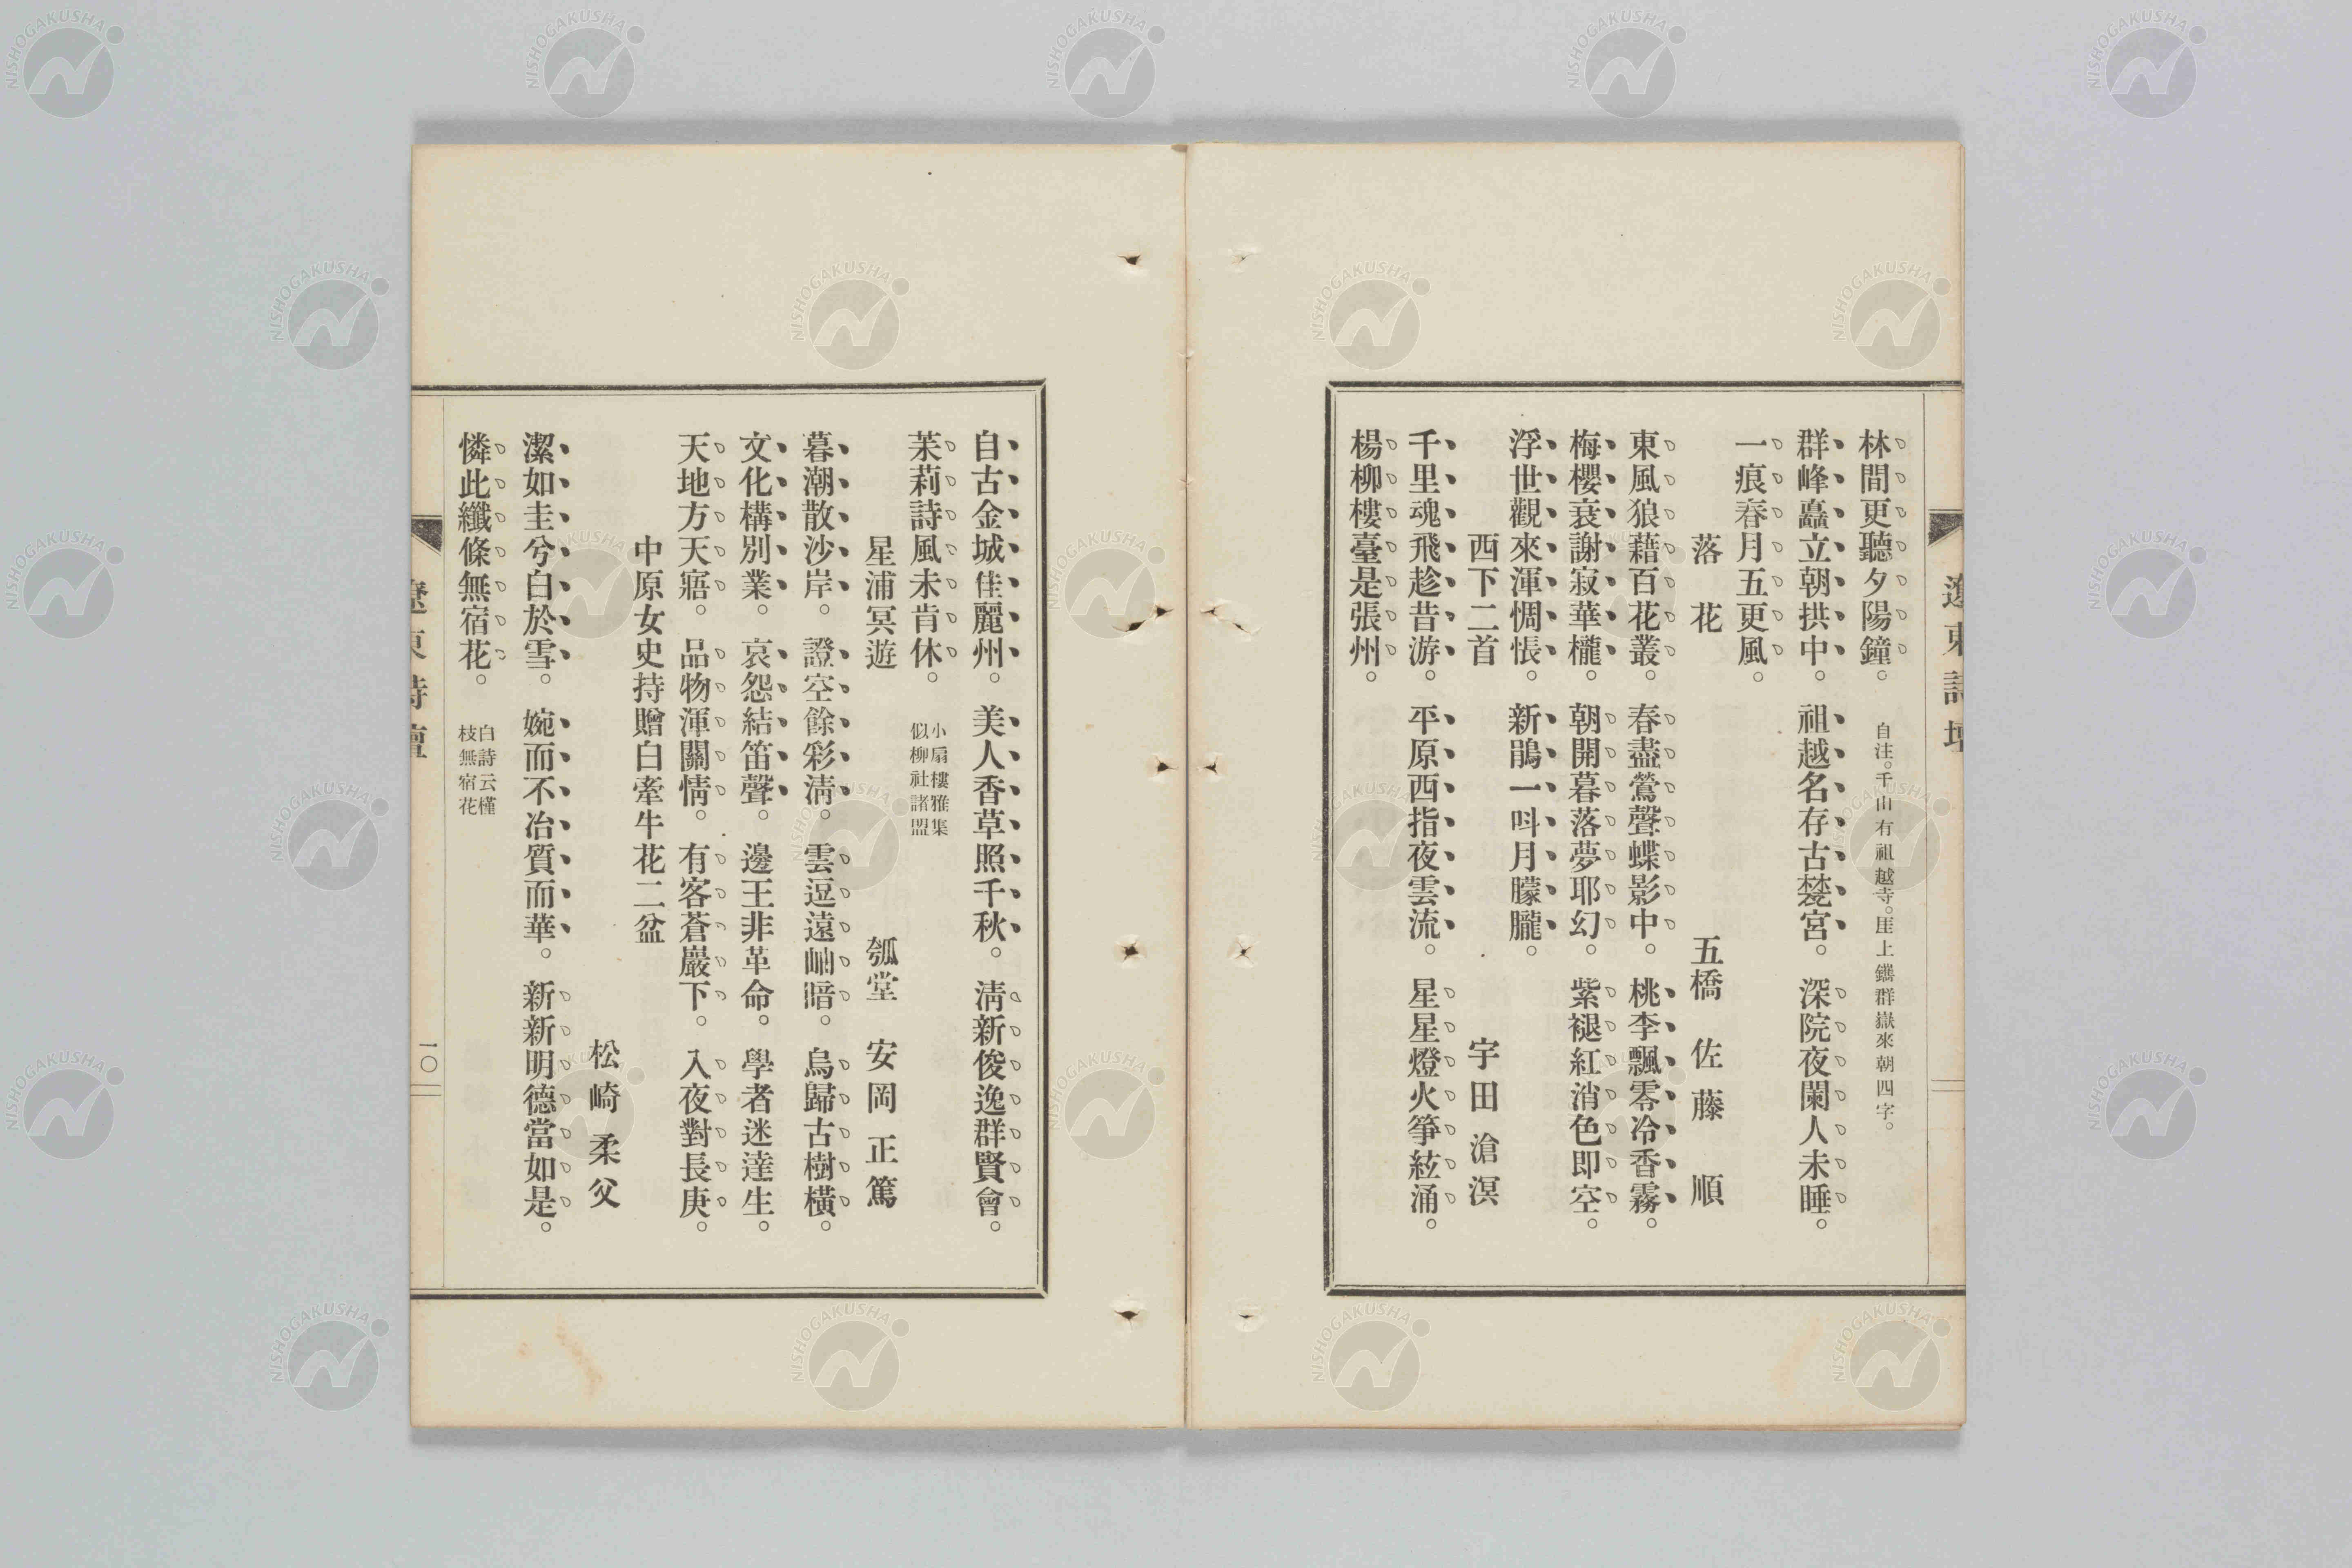 林間更聽夕陽鐘。自注。千山有祖越寺。厓上鐫群嶽來朝四字。
群峰矗立朝拱中。祖越名存古梵宮。深院夜闌人未睡。
一痕春月五更風。
落花 五橋 佐藤 順
東風狼藉百花叢。春盡鶯聲蝶影中。桃李飄零冷香霧。
梅櫻衰謝寂華櫳。朝開暮落夢耶幻。紫褪紅消色即空。
浮世觀來渾惆悵。新鵑一叫月朦朧。
西下二首 宇田滄溟
千里魂飛趁昔游。平原西指夜雲流。星星燈火箏絃涌。
楊柳樓臺是張州。
遼東詩壇
自古金城佳麗州。美人香草照千秋。清新俊逸群賢會。
茉莉詩風未肯休。小扇樓雅集似柳社諸盟
星浦冥遊 瓠堂 安岡正篤
暮潮散沙岸。證空餘彩淸。雲逗遠岫暗。烏歸古樹橫。
文化構別業。哀怨結笛聲。邊王非革命。學者迷達生。
天地方天寤。品物渾關情。有客蒼巖下。入夜對長庚。
中原女史持贈白牽牛花二盆
松崎柔父
潔如圭兮白於雪。婉而不冶質而華。新新明德當如是。
憐此纖條無宿花。白詩云槿枝無宿花
遼東詩壇
一〇
NISHOGAKUSHA